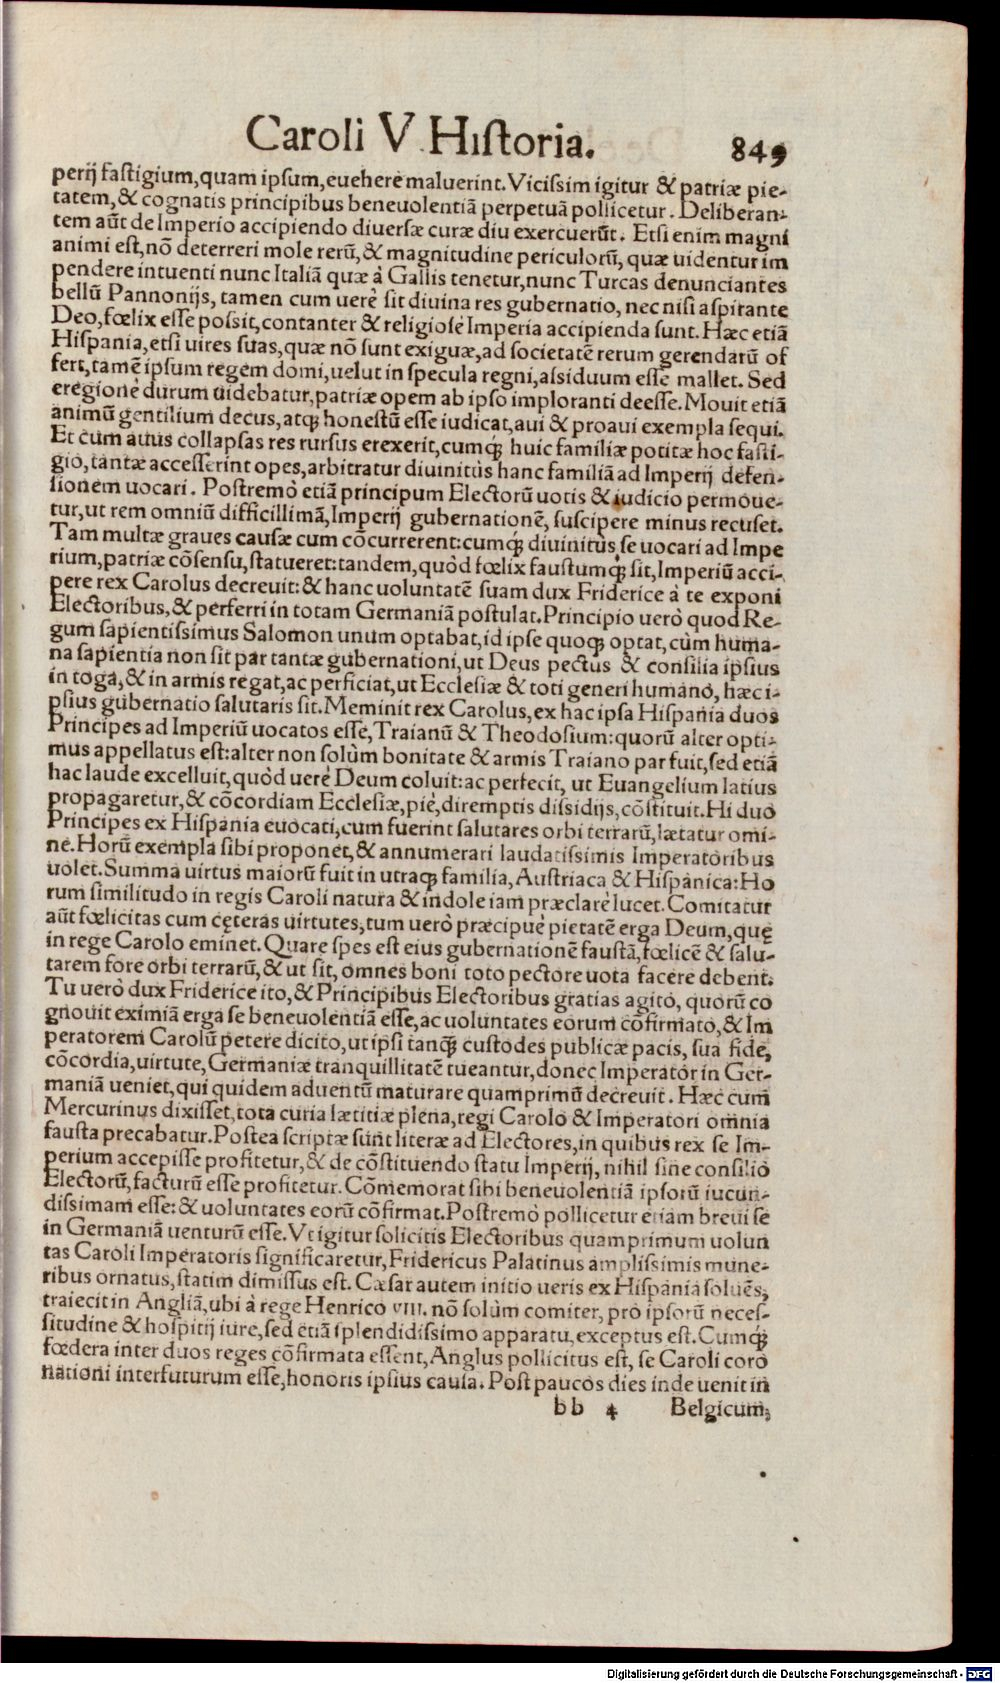 Caroli V. Hiſtoria. 849
perij faſtigium, quam ipſum, euehere maluerint. Viciſsim igitur & patriæ pie-
tatem, & cognatis principibus beneuolentiā perpetuā pollicetur. Deliberan-
tem aūt de Imperio accipiendo diuerſæ curæ diu exercuerūt. Etſi enim magni
animi eſt, nō deterreri mole rerū, & magnitudine periculorū, quæ uidentur im
pendere intuenti nunc Italiā quæ à Gallis tenetur, nunc Turcas denunciantes
bellū Pannonijs, tamen cum uerè ſit diuina res gubernatio, nec niſi aſpirante
Deo, fœlix eſſe poſsit, contanter & religioſè Imperia accipienda ſunt. Hæc etiā
Hiſpania, etſi uires ſuas, quæ nō ſunt exiguæ, ad ſocietatē rerum gerendarū of
fert, tamē ipſum regem domi, uelut in ſpecula regni, aſsiduum eſſe mallet. Sed
eregionè durum uidebatur, patriæ opem ab ipſo imploranti deeſſe. Mouit etiā
animū gentilium decus, atq́; honeſtū eſſe iudicat, aui & proaui exempla ſequi.
Et cum auus collapſas res rurſus erexerit, cumq́; huic familiæ potitæ hoc faſti-
gio, tantæ acceſſerint opes, arbitratur diuinitùs hanc familiā ad Imperij defen-
ſionem uocari. Poſtremò etiā principum Electorū uotis & iudicio permoue-
tur, ut rem omniū difficillimā, Imperij gubernationē, ſuſcipere minus recuſet.
Tam multæ graues cauſæ cum cōcurrerent: cumq́; diuinitùs ſe uocari ad Impe
rium, patriæ cōſenſu, ſtatueret: tandem, quòd fœlix fauſtumq́; ſit, Imperiū acci-
pere rex Carolus decreuit: & hanc uoluntatē ſuam dux Friderice à te exponi
Electoribus, & perferri in totam Germaniā poſtulat. Principio uerò quod Re-
gum ſapientiſsimus Salomon unum optabat, id ipſe quoq; optat, cùm huma-
na ſapientia non ſit par tantæ gubernationi, ut Deus pectus & conſilia ipſius
in toga, & in armis regat, ac perficiat, ut Eccleſiæ & toti generi humano, hæc i-
pſius gubernatio ſalutaris ſit. Meminit rex Carolus, ex hac ipſa Hiſpania duos
Principes ad Imperiū uocatos eſſe, Traianū & Theodoſium: quorū alter opti-
mus appellatus eſt: alter non ſolùm bonitate & armis Traiano par fuit, ſed etiā
hac laude excelluit, quòd uerè Deum coluit: ac perfecit, ut Euangelium latius
propagaretur, & cōcordiam Eccleſiæ, piè, diremptis diſsidijs, cōſtituit. Hi duo
Principes ex Hiſpania euocati, cum fuerint ſalutares orbi terrarū, lætatur omi-
ne. Horū exempla ſibi proponet, & annumerari laudatiſsimis Imperatoribus
uolet. Summa uirtus maiorū fuit in utraq; familia, Auſtriaca & Hiſpanica: Ho
rum ſimilitudo in regis Caroli natura & indole iam præclarè lucet. Comitatur
aūt fœlicitas cum cęteras uirtutes, tum uerò præcipuè pietatē erga Deum, quę
in rege Carolo eminet. Quare ſpes eſt eius gubernationē fauſtā, fœlicē & ſalu-
tarem fore orbi terrarū, & ut ſit, omnes boni toto pectore uota facere debent.
Tu uerò dux Friderice ito, & Principibus Electoribus gratias agito, quorū co
gnouit eximiā erga ſe beneuolentiā eſſe, ac uoluntates eorum cōfirmato, & Im
peratorem Carolū petere dicito, ut ipſi tanq̃; cuſtodes publicæ pacis, ſua fide,
cōcordia, uirtute, Germaniæ tranquillitatē tueantur, donec Imperator in Ger-
maniā ueniet, qui quidem aduentū maturare quamprimū decreuit. Hæc cum
Mercurinus dixiſſet, tota curia lætitiæ plena, regi Carolo & Imperatori omnia
fauſta precabatur. Poſtea ſcriptæ ſunt literæ ad Electores, in quibus rex ſe Im-
perium accepiſſe profitetur, & de cōſtituendo ſtatu Imperij, nihil ſine conſilio
Electorū, facturū eſſe profitetur. Cōmemorat ſibi beneuolentiā ipſorū iucun-
diſsimam eſſe: & uoluntates eorū cōfirmat. Poſtremò pollicetur etiam breui ſe
in Germaniā uenturū eſſe. Vt igitur ſolicitis Electoribus quamprimum uolun
tas Caroli Imperatoris ſignificaretur, Fridericus Palatinus ampliſsimis mune-
ribus ornatus, ſtatim dimiſſus eſt. Cæſar autem initio ueris ex Hiſpania ſoluēs,
traiecit in Angliā, ubi à rege Henrico VIII. nō ſolùm comiter, pro ipſorū neceſ-
ſitudine & hoſpitij iure, ſed etiā ſplendidiſsimo apparatu, exceptus eſt. Cumq́;
fœdera inter duos reges cōfirmata eſſent, Anglus pollicitus eſt, ſe Caroli coro
nationi interfuturum eſſe, honoris ipſius cauſa. Poſt paucos dies inde uenit in
bb 4 Belgicum,
Digitalisierung gefördert durch die Deutsche Forschungsgemeinschaft - DFG